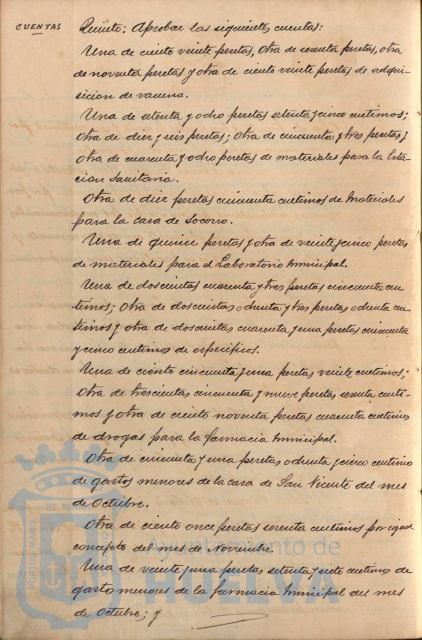 CUENTAS
Quinto: Aprobar las siguientes cuentas:
Una de ciento veinte pesetas, otra de sesenta pesetas, otra
de noventa pesetas y otra de ciento veinte pesetas de adqui-
sicion de vacuna.
Una de setenta y ocho pesetas setenta y cinco centimos;
otra de diez y seis pesetas; otra de cincuenta y tres pesetas;
otra de cuarenta y ocho pesetas de materiales para la Esta-
cion Sanitaria.
Otra de diez pesetas cincuenta centimos de Materiales
para la casa de socorro.
Una de quince pesetas y otra de veinte y cinco pesetas
de materiales para el Laboratorio Municipal.
Una de doscientas cuarenta y tres pesetas cincuenta cen-
timos; otra de doscientas ochenta y tres pesetas ochenta cen-
timos y otra de doscientas cuarenta y una pesetas cincuenta
y cinco centimos de especificos.
Una de ciento cincuenta y una pesetas veinte centimos;
otra de trescientas cincuenta y nueve pesetas sesenta centi-
mos y otra de ciento noventa pesetas cuarenta centimos
de drogas para la farmacia Municipal.
Otra de cincuenta y una pesetas ochenta y cinco centimos
de gastos menores de la casa de San Vicente del mes
de Octubre.
Otra de ciento once pesetas sesenta centimos por igual
concepto del mes de Noviembre.
Una de veinte y una pesetas setenta y siete centimos de
gastos menores de la farmacia Municipal del mes
de Octubre; y
Ayuntamiento de
HUELVA
PORTUS MARIS